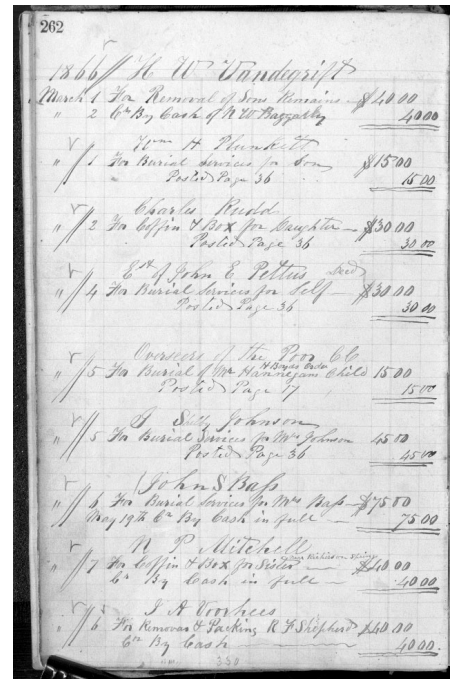 262
1866 H W Vandegrift
March 1 For Removal of Sons Remains $40 00
" 2 Cr By Cash of N W Baggatly 40 00
Wm H Plunkett
" 1 For Burial Services for Son $15 00
Posted Page 36 15 00
Charles Rudd
" 2 For Coffin & Box for Daughter $30 00
Posted Page 36 30 00
Est of John E Pettus Decd
" 4 For Burial Services for Self $30 00
Posted Page 36 30 00
Overseers of the Poor
H Boyds Order
" 5 For Burial of Mr Hannegans Child 15 00
Posted Page 17 15 00
Johnson
" 5 For Burial Services for Mrs Johnson 45 00
Posted Page 36 45 00
John S Bass
" 6 For Burial Services for Mrs Bass $75 00
May 19th Cr By Cash in full 75 00
N P Mitchell
" 7 For Coffin & Box for Sister $40 00
Cr By Cash in full 40 00
J A Voorhees
" 6 For Removal & Packing R F Shepherd $40 00
Cr By Cash 40 00